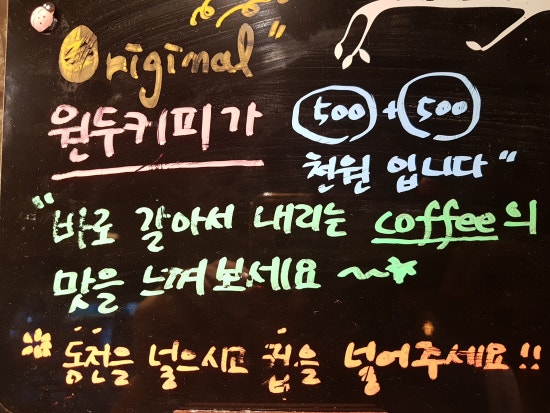 Original"
원두키피가 500 + 500
천원 입니다"
"바로 갈아서 내리는 coffee의
맛을 느껴보세요 ~
동전을 넣으시고 컵을 넣어주세요!!